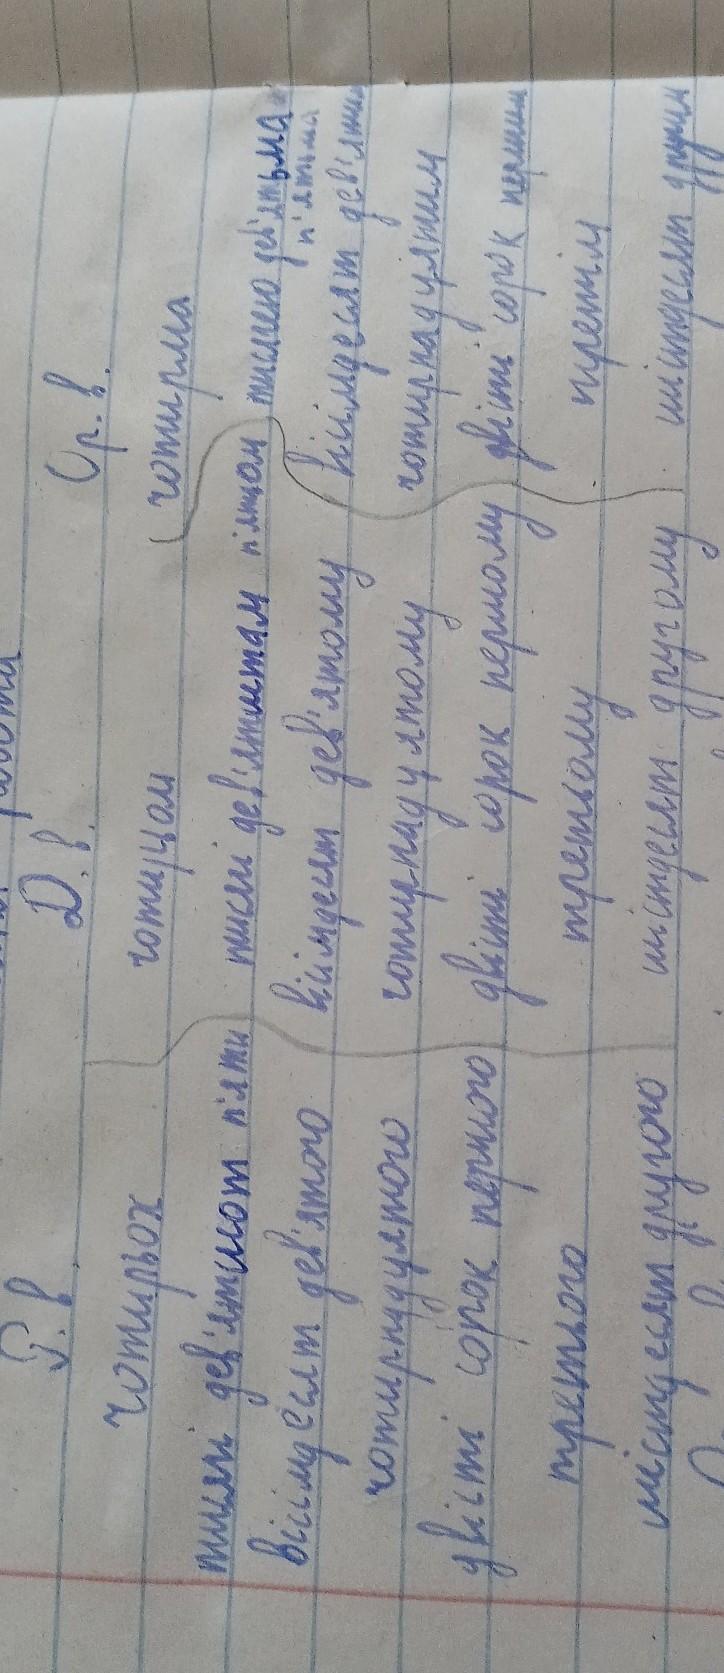 Р. в. Д. в. Ор. в.
чотирьох чотирьом чотирма
тисячі дев'ятисот п'яти тисячі дев'ятистам п'ятьом тисячею дев'ятьма
п'ятьма
вісімдесят дев'ятого вісімдесят дев'ятому вісімдесят дев'ятим
чотирнадцятого чотирнадцятому чотирнадцятим
двісті сорок першого двісті сорок першому двісті сорок першим
третього третьому третім
шістдесят другого шістдесят другому шістдесят другим